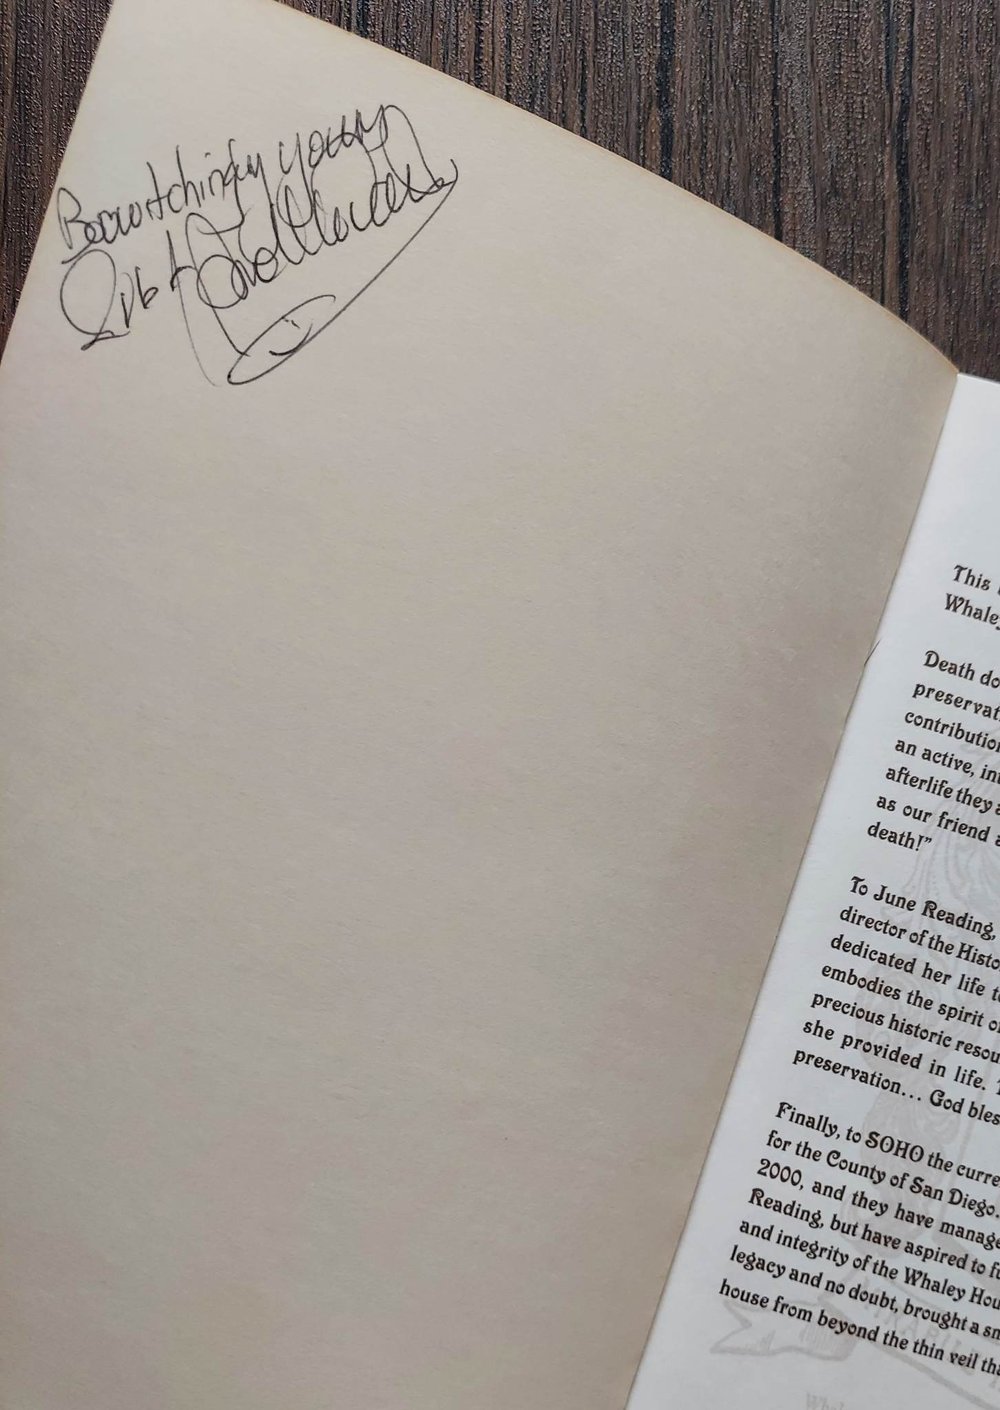 Bewitchingly yours
Rob &
This
Whaley
Death do
preservat
contribution
an active, int
afterlife they a
as our friend a
death!"
To June Reading,
director of the Histo
dedicated her life t
embodies the spirit o
precious historic resou
she provided in life. T
preservation... God bles
Finally, to SOHO the curre
for the County of San Diego.
2000, and they have manage
Reading, but have aspired to fu
and integrity of the Whaley Hou
legacy and no doubt, brought a sm
house from beyond the thin veil tha